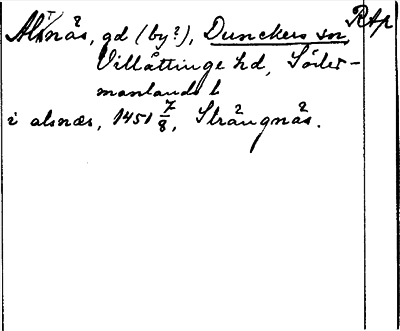 Rtp
Alsnäs, gd (by?), Dunckers sn,
Villåttinge hd, Söder-
manlands l.
i alsnæs, 1451 7/8, Strängnäs.